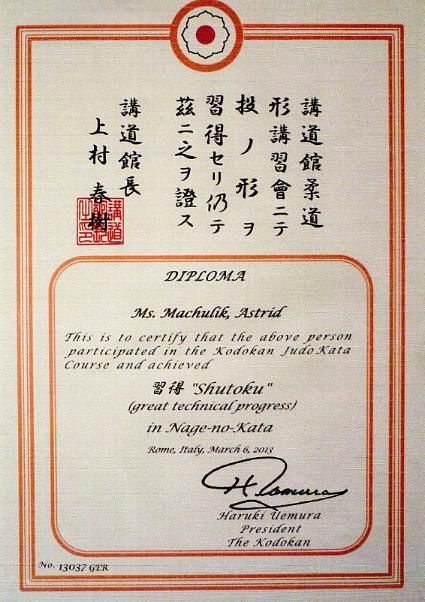 講道館柔道
形講習會ニテ
投ノ形ヲ
習得セリ仍テ
茲ニ之ヲ證ス
講道館長
上村春樹
DIPLOMA
Ms. Machulik, Astrid
This is to certify that the above person
participated in the Kodokan Judo Kata
Course and achieved
習得 "Shutoku"
(great technical progress)
in Nage-no-Kata
Rome, Italy, March 6, 2013
H. Uemura
Haruki Uemura
President
The Kodokan
No. 13037 GER